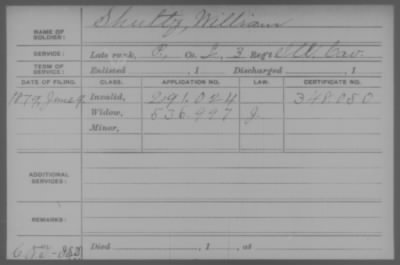 NAME OF SOLDIER: Shultz, William
SERVICE: Late rank, P, Co. L, 3 Reg't Cav.
TERM OF SERVICE: Enlisted , 1 Discharged , 1
DATE OF FILING. CLASS. APPLICATION NO. LAW. CERTIFICATE NO.
1879, June 9 Invalid, 291.024 348.080
Widow, 536.997 J.
Minor,
ADDITIONAL SERVICES:
REMARKS:
Died , 1 , at